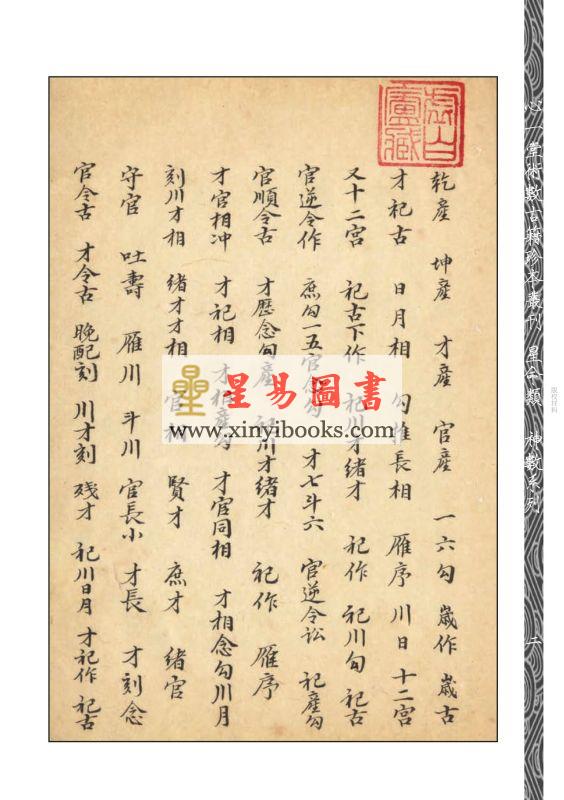 心一堂術數古籍珍本叢刊 星命類 神數系列
二
版權材料
虛白廬藏
乾產 坤產 才產 官產 一六勾 歲作 歲古
才祀古 日月相 勾推長相 雁序 川日 十二宮
又十二宮 祀古下作 祀川才緒才 祀作 祀川旬 祀古
官逆令作 庶勾一五官 才七斗六 官逆令訟 祀產勾
官順令古 才歷念勾產 祀川才緒才 祀作 雁序
才官相冲 才祀相 才相產勾 才官同相 才相念勾川月
刻川才相 緒才才相 官相 賢才 庶才 緒官
守官 吐壽 雁川 斗川 官長小 才長 才刻念
官令古 才令古 晚配刻 川才刻 殘才 祀川日月 才祀作 祀古
星易圖書
www.xinyibooks.com